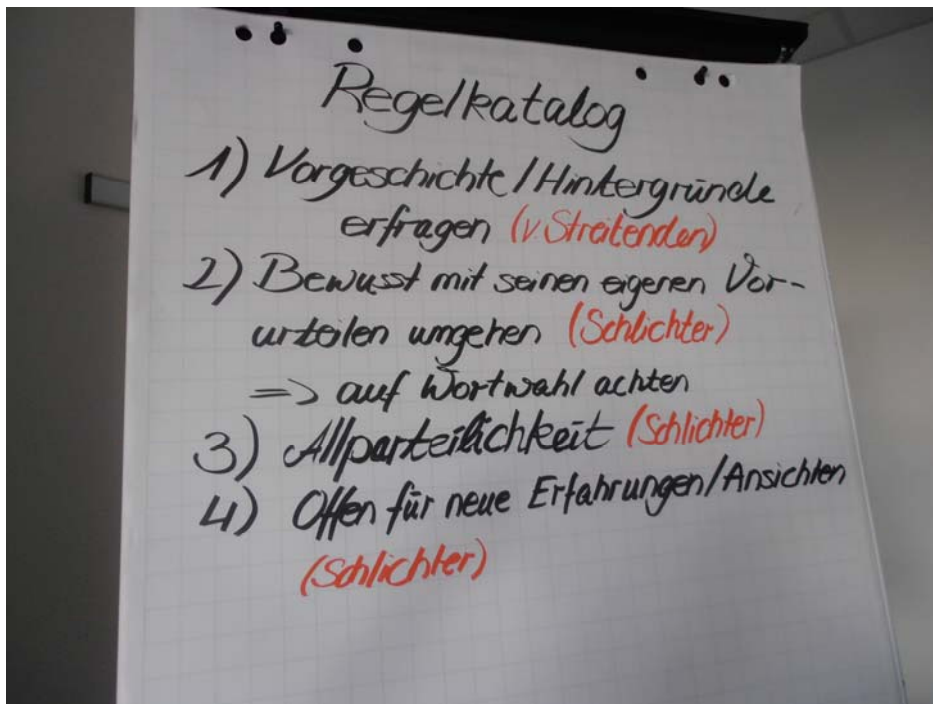 Regelkatalog
1) Vorgeschichte/Hintergründe
erfragen (v. Streitenden)
2) Bewusst mit seinen eigenen Vor-
urteilen umgehen (Schlichter)
=> auf Wortwahl achten
3) Allparteilichkeit (Schlichter)
4) Offen für neue Erfahrungen/Ansichten
(Schlichter)